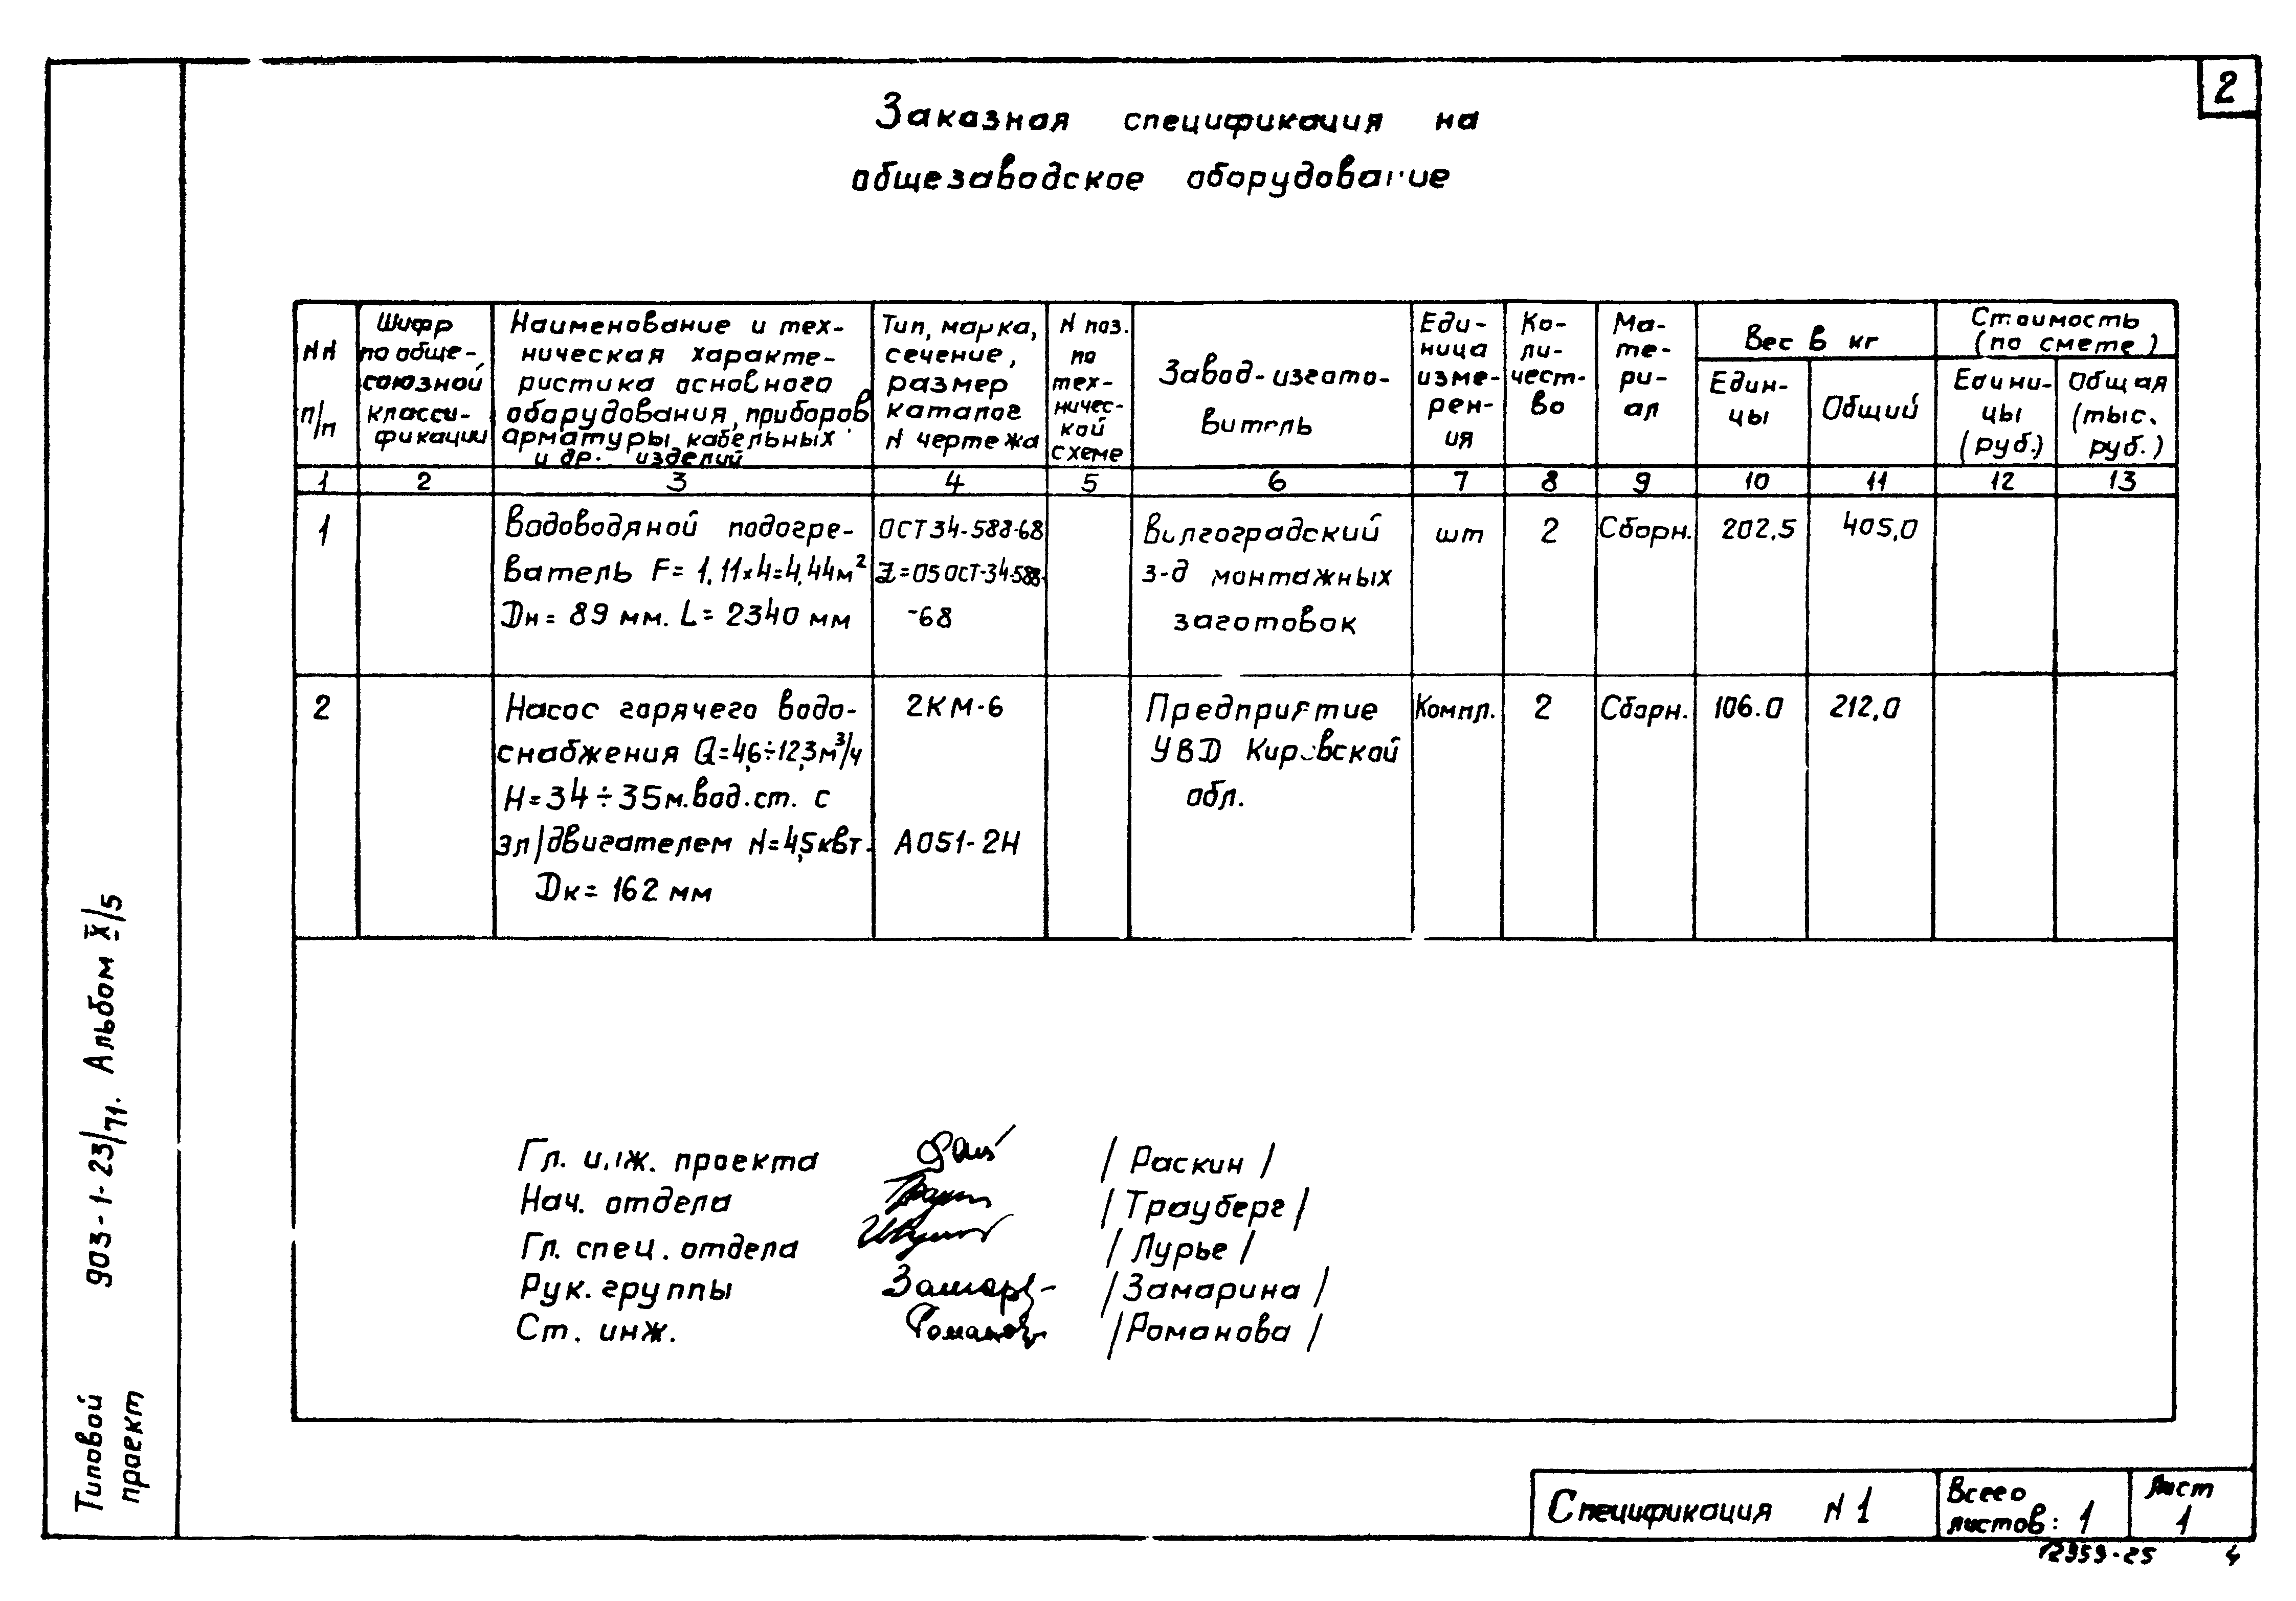 2
Заказная спецификация на
общезаводское оборудование
NN
п/п
Шифр
по обще-
союзной
класси-
фикации
Наименование и тех-
ническая характе-
ристика основного
оборудования, приборов
арматуры, кабельных
и др. изделий
Тип, марка,
сечение,
размер
каталог
N чертежа
N поз.
по
тех-
ничес-
кой
схеме
Завод-изгото-
витель
Еди-
ница
изме-
рен-
ия
Ко-
ли-
чест-
во
Ма-
те-
ри-
ал
Вес в кг
Един-
цы
Общий
Стоимость
(по смете)
Едини-
цы
(руб.)
Общая
(тыс.
руб.)
1 2 3 4 5 6 7 8 9 10 11 12 13
1
Водоводяной подогре-
ватель F= 1,11×4=4,44м²
Dн= 89 мм. L= 2340 мм
ОСТ34-588-68
=05 ОСТ-34-588-
-68
Волгоградский
з-д монтажных
заготовок
шт
2
Сборн.
202,5
405,0
2
Насос горячего водо-
снабжения Q=4,6÷12,3м³/ч
H=34÷35м.вод.ст. с
эл/двигателем N=4,5квт.
Dк= 162 мм
2КМ-6
АО51-2Н
Предприятие
УВД Кировской
обл.
Компл.
2
Сборн.
106.0
212,0
Гл. инж. проекта /Раскин/
Нач. отдела /Трауберг/
Гл. спец. отдела /Лурье/
Рук. группы /Замарина/
Ст. инж. /Романова/
Типовой
проект
903-1-23/71. Альбом X/5
Спецификация N1
Всего
листов: 1
Лист
1
12959-25 4